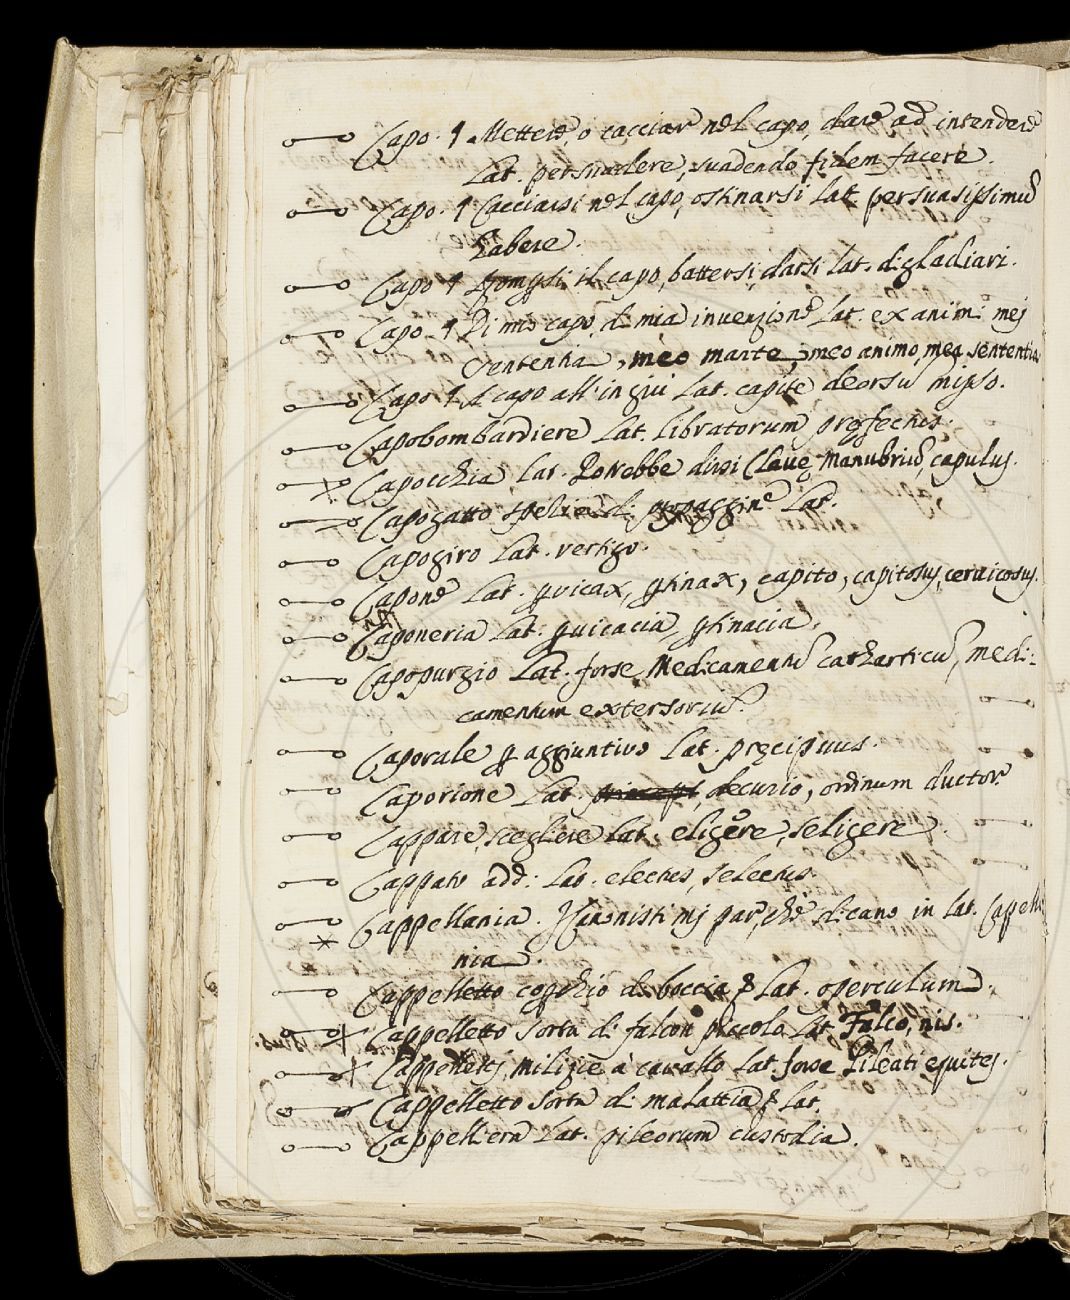 Capo. ¶ Mettere, o cacciar nel capo, dare ad intendere
Lat. persuadere, suadendo fidem facere.
Capo. ¶ Cacciarsi nel capo, ostinarsi Lat. persuasissimũ
habere.
Capo ¶ il capo, battersi, darsi Lat. digladiari.
Capo. ¶ Di mio capo, di mia invenzione Lat. ex animi mei
sententia, meo marte, meo animo, mea sententia
Capo ¶ Il capo all'ingiù Lat. capite deorsũ misso.
Capobombardiere Lat. Libratorum prefectus.
Capocchia Lat. Potrebbe dirsi Clavę manubriũ, capulus.
Capogatto spezie di propaggine Lat.
Capogiro Lat. vertigo.
Capone Lat. pvicax, ptinax, capito, capitosus, cervicosus.
Caponeria Lat. pvicacia, ptinacia.
Capopurgio Lat. forse Medicamentũ catharticũ, medi:
camentum extersoriũ.
Caporale p aggiuntivo Lat. pręcipuus.
Caporione Lat. decurio, ordinum ductor
Cappare, scegliere Lat. eligere, seligere.
Cappato add: Lat. electus, selectus
Cappellania. I Canonisti mi par, che dicano in Lat. Cappella
nia.
Cappelletto copchio di boccia p Lat. operculum.
Cappelletto sorta di falcon piccolo Lat. Falco, nis.
Cappelletti, milizie à cavallo Lat. forse Pileati equites.
Cappelletto sorta di malattia p Lat.
Cappelliera Lat. pileorum custodia.